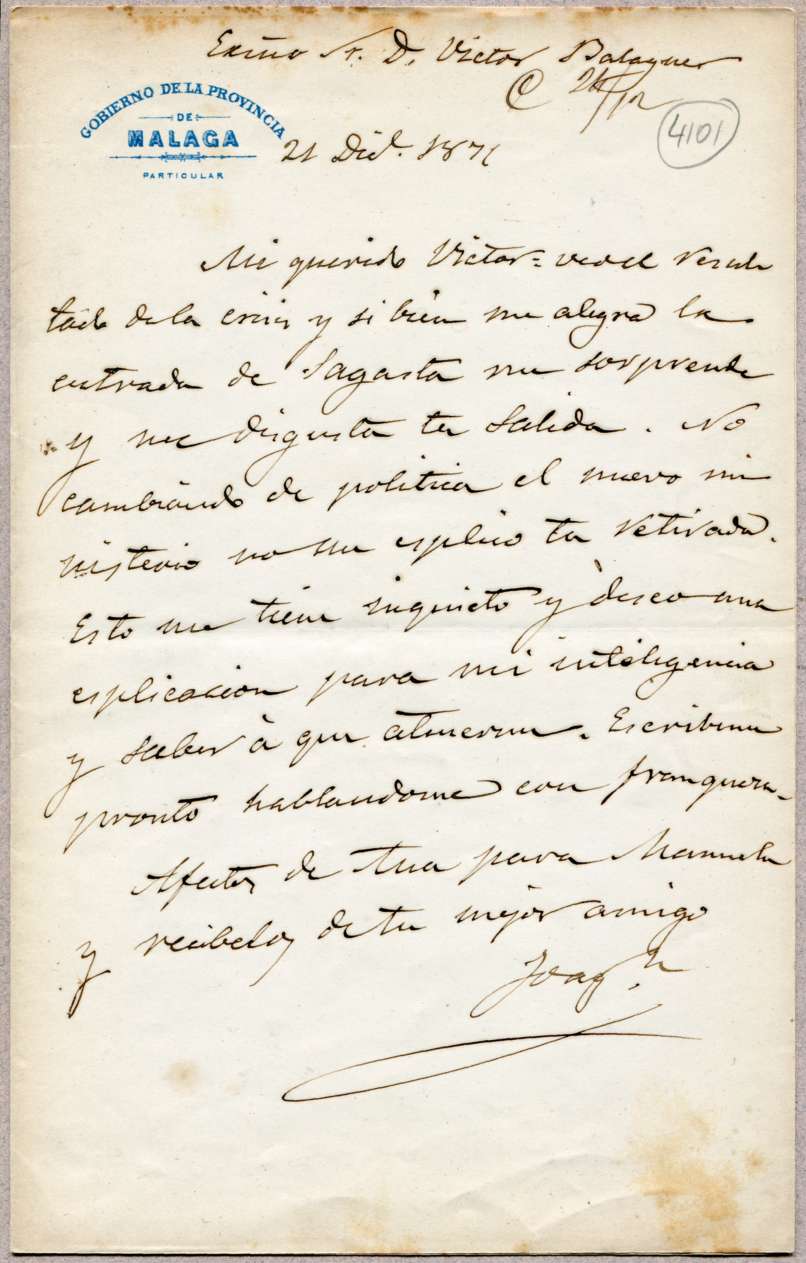 Exmo Sr. D. Victor Balaguer
C 24/12
GOBIERNO DE LA PROVINCIA
DE
MALAGA
PARTICULAR
4101
21 Dic. 1871
Mi querido Victor = veo el resul
tado de la crisis y si bien me alegra la
entrada de Sagasta me sorprende
y me disgusta tu salida. No
cambiando de politica el nuevo mi
nisterio no me esplico tu retirada.
Esto me tiene inquieto y deseo una
esplicacion para mi inteligencia
y saber à que atenerme. Escribeme
pronto hablandome con franqueza.
Afectos de Ana para Manuela
y recibelos de tu mejor amigo
Joaqn